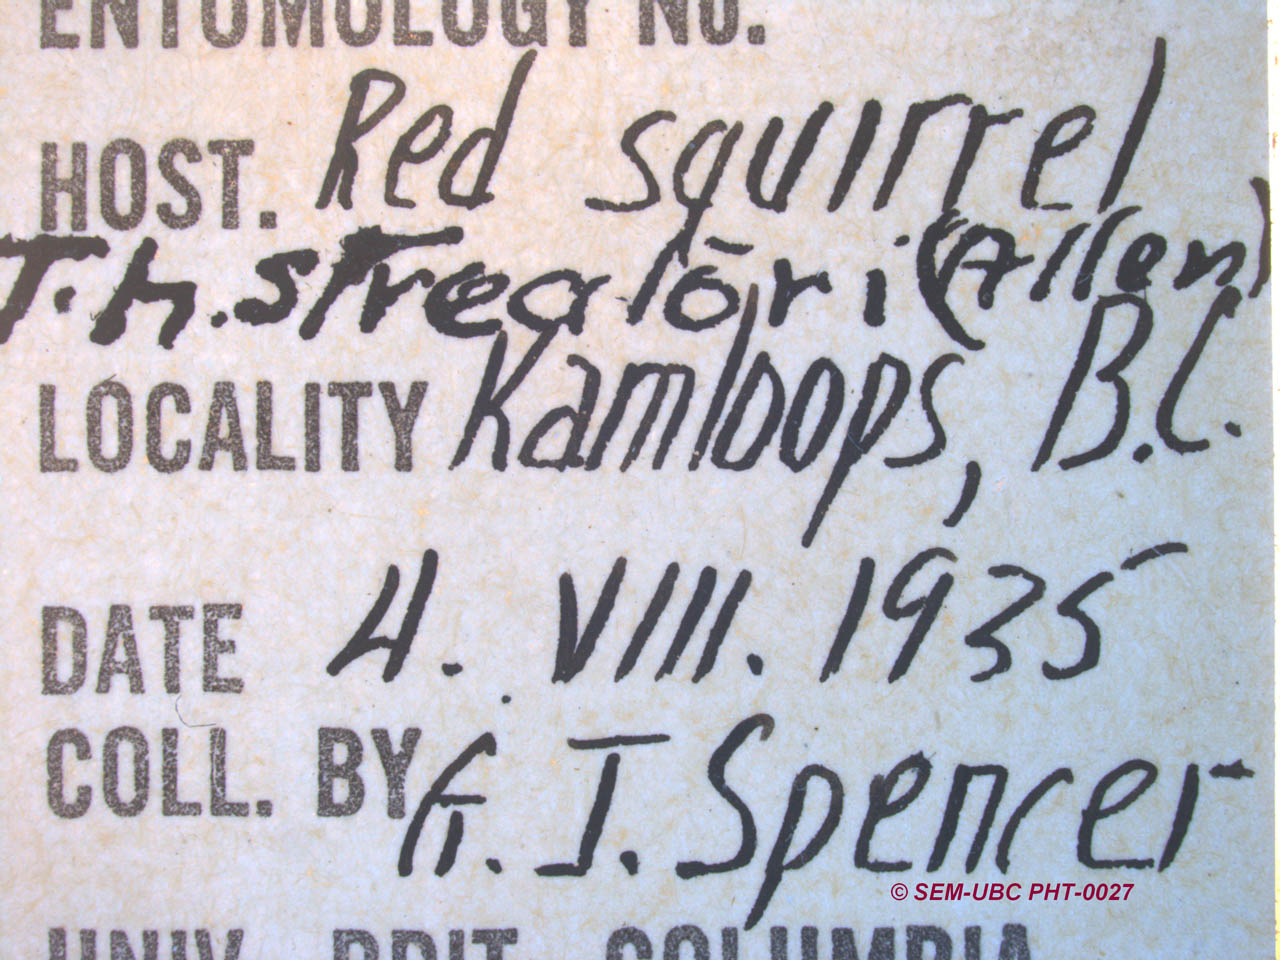 ENTOMOLOGY NO.
HOST. Red squirrel
T.h. streatori (Allen)
LOCALITY Kamloops, B.C.
DATE 4. VIII. 1935
COLL. BY G. J. Spencer
© SEM-UBC PHT-0027
UNIV. BRIT. COLUMBIA